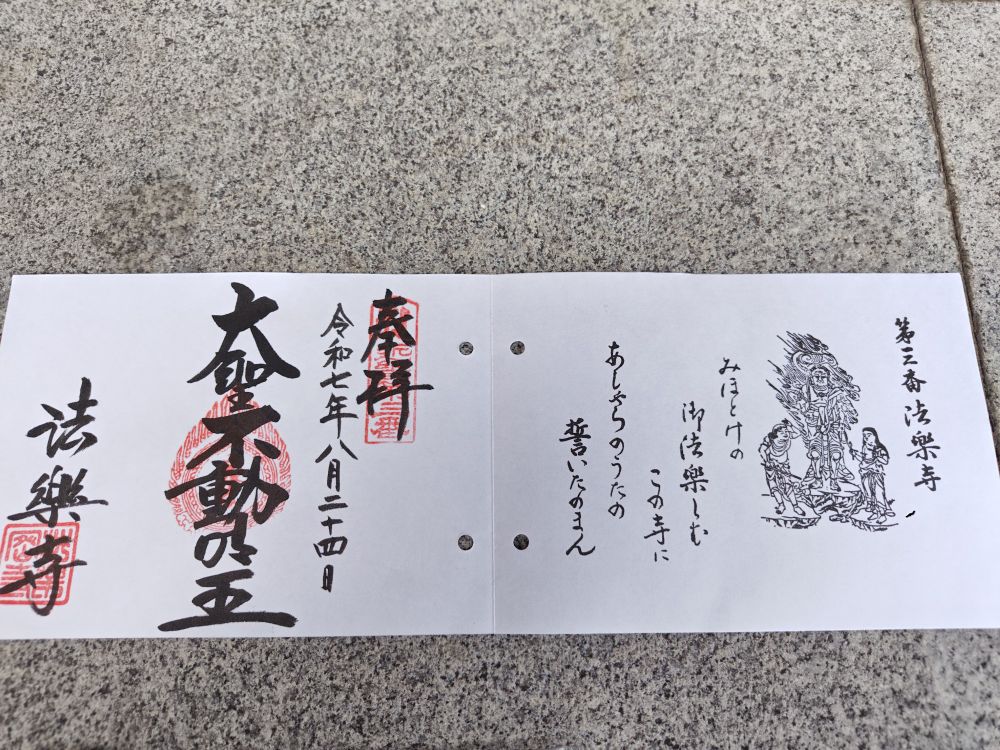 第三番 法樂寺
みほとけの
御法楽しむ
この寺に
あしゃらのうたの
誓いたのまん
奉拝
令和七年八月二十四日
大聖不動明王
法樂寺